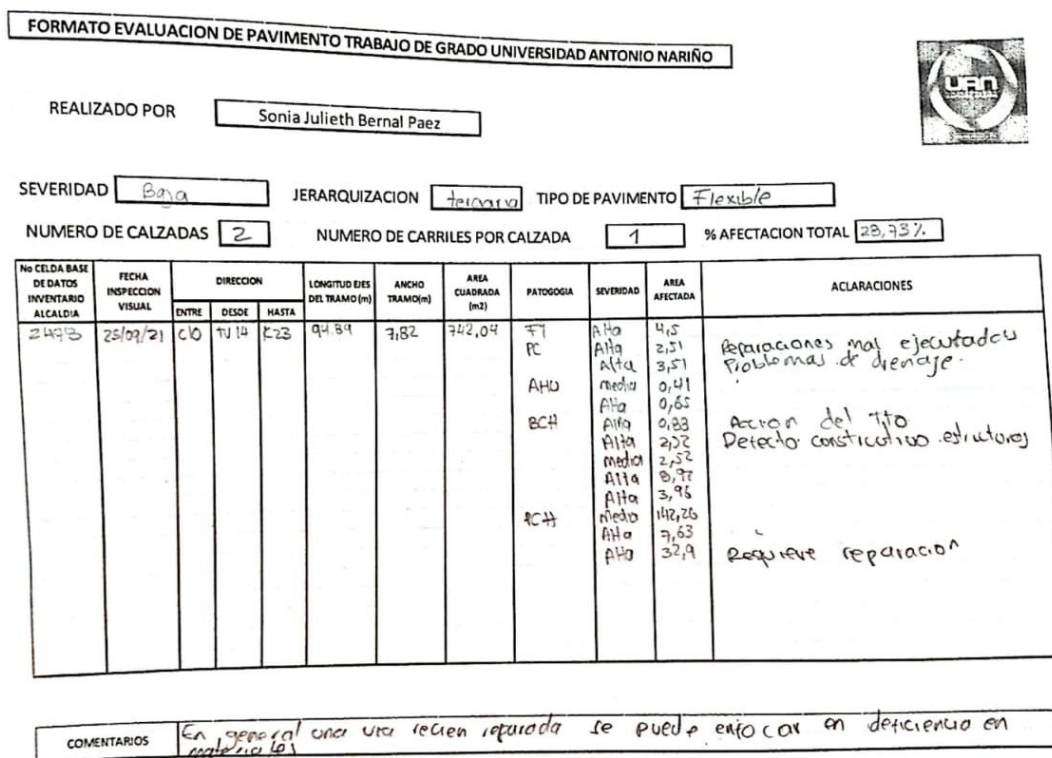 FORMATO EVALUACION DE PAVIMENTO TRABAJO DE GRADO UNIVERSIDAD ANTONIO NARIÑO
UAN
REALIZADO POR Sonia Julieth Bernal Paez
SEVERIDAD Baja JERARQUIZACION terciaria TIPO DE PAVIMENTO Flexible
NUMERO DE CALZADAS 2 NUMERO DE CARRILES POR CALZADA 1 % AFECTACION TOTAL 28,73%
No CELDA BASE DE DATOS INVENTARIO ALCALDIA FECHA INSPECCION VISUAL DIRECCION ENTRE DESDE HASTA LONGITUD EJES DEL TRAMO (m) ANCHO TRAMO(m) AREA CUADRADA (m2) PATOGOGIA SEVERIDAD AREA AFECTADA ACLARACIONES
2473 25/09/21 C10 TV 14 K23 94.89 7,82 742,04 FT Alta 4,5
PC Alta 2,51 Reparaciones mal ejecutados
Alta 3,51 Problemas de drenaje.
AHU media 0,41
Alta 0,65
BCH Alta 0,83 Accion del TTO
Alta 2,52 Defecto constructivo estructuras
media 2,52
Alta 8,97
Alta 3,96
PCH Medio 142,26
Alta 7,63
Alta 32,9 Requiere reparacion
COMENTARIOS En general una via recien reparada se puede enfocar en deficiencia en
materiales